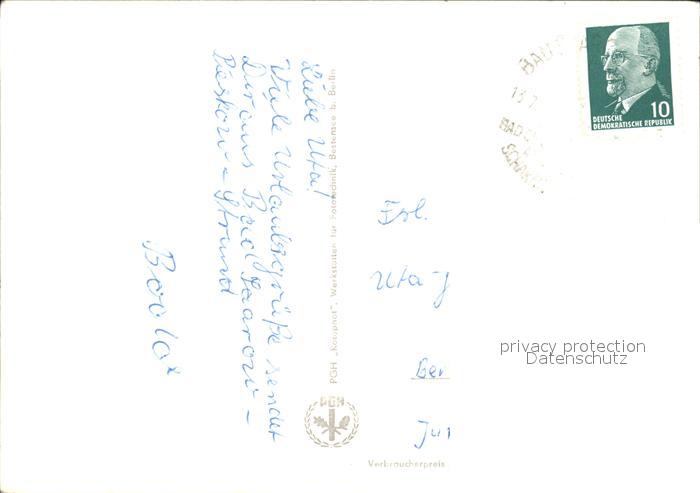 Liebe Uta!
Viele Urlaubsgrüße sendet
Dir aus Bad Saarow -
Pieskow - Strand
PGH „Kosuphot", Werkstätten für Fototechnik, Bestensee b. Berlin
PGH
Verbraucherpreis
Frl.
Uta
Ber
BAD
13.7.
BAD
10
DEUTSCHE
DEMOKRATISCHE REPUBLIK
privacy protection
Datenschutz